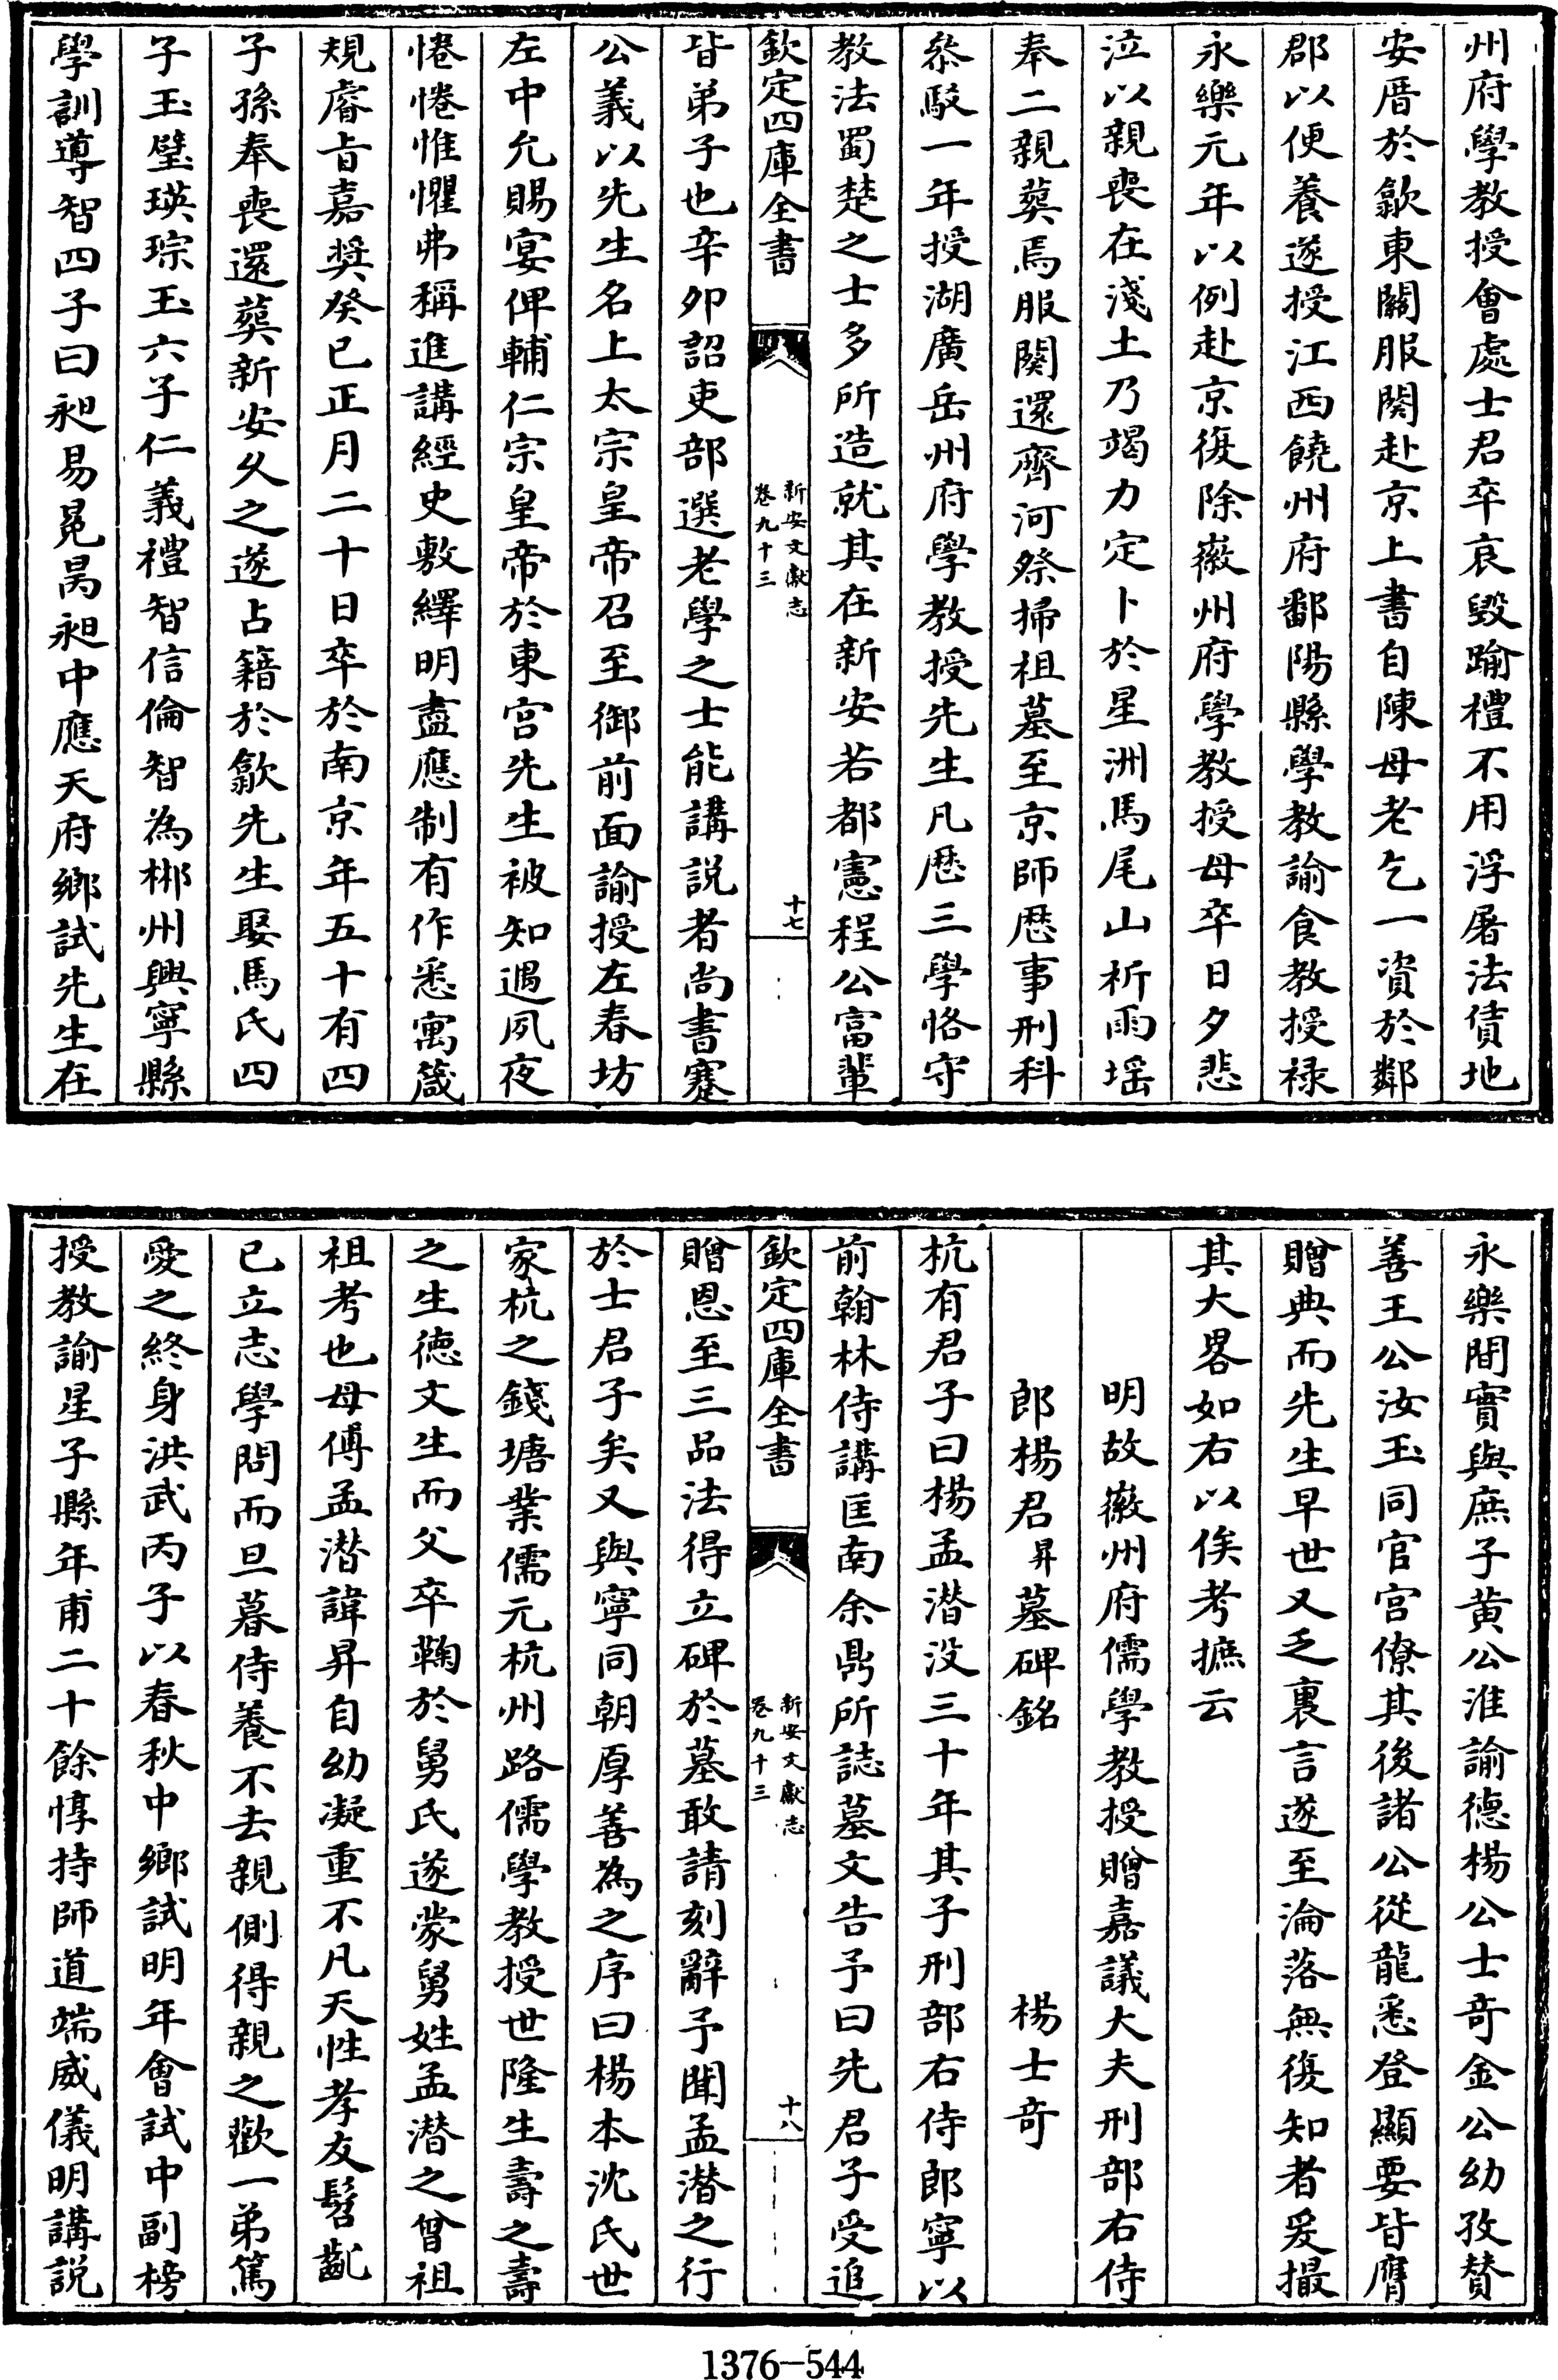 州府學教授會處士君卒哀毀踰禮不用浮屠法僓地
安厝於歙東關服闋赴京上書自陳母老乞一資於鄰
郡以便養遂授江西饒州府鄱陽縣學教諭食教授祿
永樂元年以例赴京復除徽州府學教授母卒日夕悲
泣以親喪在淺土乃竭力定卜於星洲馬尾山祈雨墧
奉二親葬焉服闋還齊河祭掃祖墓至京師歷事刑科
叅駮一年授湖廣岳州府學教授先生凡歷三學恪守
教法蜀楚之士多所造就其在新安若都憲程公富輩
欽定四庫全書
新安文獻志
卷九十三
十七
皆弟子也辛卯詔吏部選老學之士能講說者尚書蹇
公義以先生名上太宗皇帝召至御前面諭授左春坊
左中允賜宴俾輔仁宗皇帝於東宮先生被知遇夙夜
惓惓惟懼弗稱進講經史敷繹明盡應制有作悉寓箴
規睿旨嘉奬癸巳正月二十日卒於南京年五十有四
子孫奉喪還葬新安乆之遂占籍於歙先生娶馬氏四
子玉璧瑛琮玉六子仁義禮智信倫智為郴州興寧縣
學訓導智四子曰昶易冕昺昶中應天府鄉試先生在
永樂間實與庶子黃公淮諭德楊公士竒金公幼孜賛
善王公汝玉同官宮僚其後諸公從龍悉登顯要皆膺
贈典而先生早世又乏裏言遂至淪落無復知者爰撮
其大畧如右以俟考摭云
明故徽州府儒學教授贈嘉議大夫刑部右侍
郎楊君昇墓碑銘 楊士竒
杭有君子曰楊孟潜没三十年其子刑部右侍郎寧以
前翰林侍講匡南余鼎所誌墓文告予曰先君子受追
欽定四庫全書
新安文獻志
卷九十三
十八
贈恩至三品法得立碑於墓敢請刻辭予聞孟潜之行
於士君子矣又與寧同朝厚善為之序曰楊本沈氏世
家杭之錢塘業儒元杭州路儒學教授世隆生壽之壽
之生德文生而父卒鞠於舅氏遂蒙舅姓孟潜之曾祖
祖考也母傅孟潜諱昇自幼凝重不凡天性孝友髫齔
已立志學問而旦暮侍養不去親側得親之歡一弟篤
愛之終身洪武丙子以春秋中鄉試明年會試中副榜
授教諭星子縣年甫二十餘惇持師道端威儀明講說
1376-544